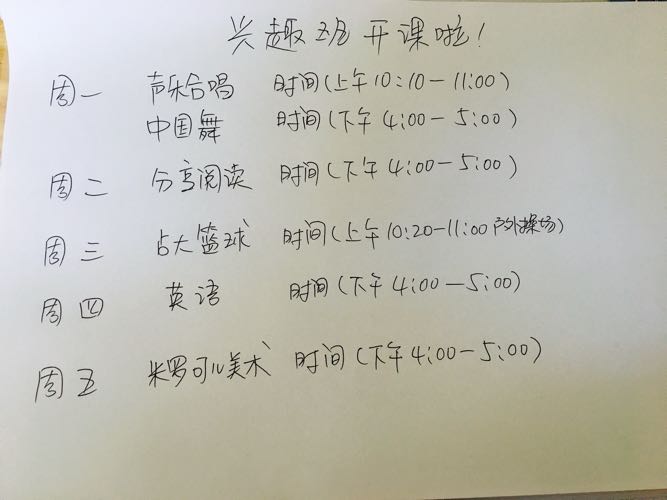 兴趣班开课啦!
周一 声乐合唱 时间(上午10:10-11:00)
中国舞 时间(下午4:00-5:00)
周二 分享阅读 时间(下午4:00-5:00)
周三 占大篮球 时间(上午10:20-11:00户外操场)
周四 英语 时间(下午4:00-5:00)
周五 米罗可儿美术 时间(下午4:00-5:00)